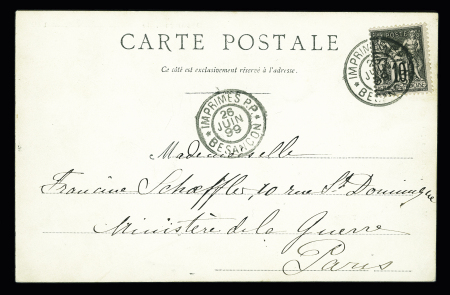 CARTE POSTALE
Ce côté est exclusivement réservé à l'adresse.
IMPRIMÉS P.P.
26
JUIN
99
BESANCON
IMPRIMÉS
BESANCON
10
Mademoiselle
Francine Schæffler, 10 rue St Dominique
Ministère de la Guerre
Paris